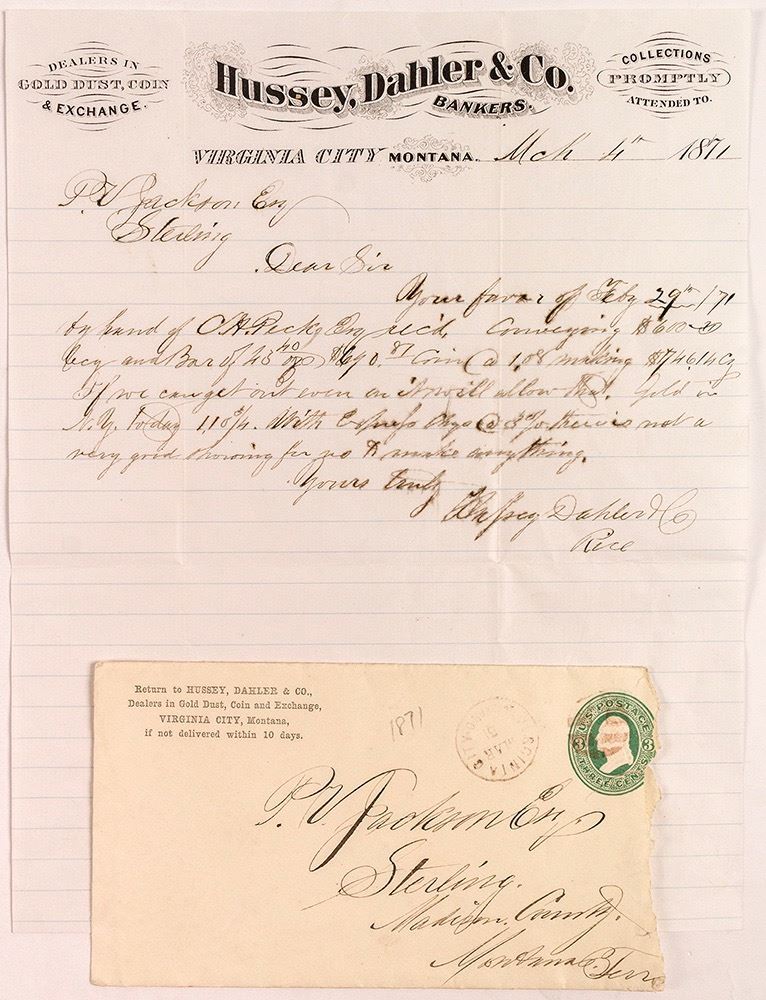 DEALERS IN
GOLD DUST, COIN
& EXCHANGE.
Hussey, Dahler & Co.
BANKERS.
COLLECTIONS
PROMPTLY
ATTENDED TO.
VIRGINIA CITY MONTANA. Mch 4th 1871
P. V. Jackson Esq
Sterling
Dear Sir
Your favor of Feby 29th /71
by hand of Esq rec'd, Conveying
and Bar of $690.87 Coin @ 1.08 making
If we can get out even on it will allow that. Gold in
N.Y. Today 110 3/4. With Express @ there is not a
very good showing for us to make anything.
Yours truly
Hussey Dahler & Co
Rice
Return to HUSSEY, DAHLER & CO.,
Dealers in Gold Dust, Coin and Exchange,
VIRGINIA CITY, Montana,
if not delivered within 10 days.
1871
VIRGINIA CITY
MAR
U.S. POSTAGE
3 3
THREE CENTS
P. V. Jackson Esq
Sterling.
Madison County.
Montana Terr